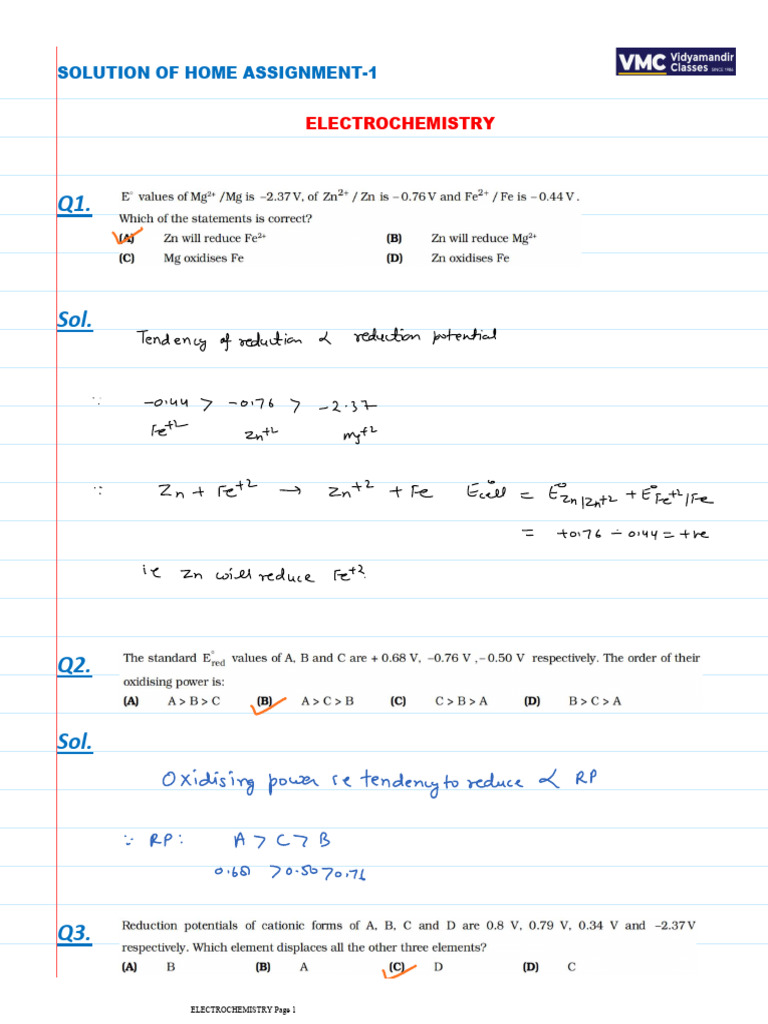 SOLUTION OF HOME ASSIGNMENT-1
VMC Vidyamandir Classes SINCE 1986
ELECTROCHEMISTRY
Q1. E° values of Mg²⁺ /Mg is –2.37 V, of Zn²⁺ / Zn is – 0.76 V and Fe²⁺ / Fe is – 0.44 V .
Which of the statements is correct?
(A) Zn will reduce Fe²⁺ (B) Zn will reduce Mg²⁺
(C) Mg oxidises Fe (D) Zn oxidises Fe
Sol.
Tendency of reduction ∝ reduction potential
∵ -0.44 > -0.76 > -2.37
Fe⁺² Zn⁺² Mg⁺²
∵ Zn + Fe⁺² → Zn⁺² + Fe E°cell = E°Zn|Zn+2 + E°Fe+2/Fe
= +0.76 - 0.44 = +ve
ie Zn will reduce Fe⁺².
Q2. The standard E°red values of A, B and C are + 0.68 V, –0.76 V ,– 0.50 V respectively. The order of their
oxidising power is:
(A) A > B > C (B) A > C > B (C) C > B > A (D) B > C > A
Sol.
Oxidising power ie tendency to reduce ∝ RP
∵ RP: A > C > B
0.68 > 0.50 > 0.76
Q3. Reduction potentials of cationic forms of A, B, C and D are 0.8 V, 0.79 V, 0.34 V and –2.37 V
respectively. Which element displaces all the other three elements?
(A) B (B) A (C) D (D) C
ELECTROCHEMISTRY Page 1